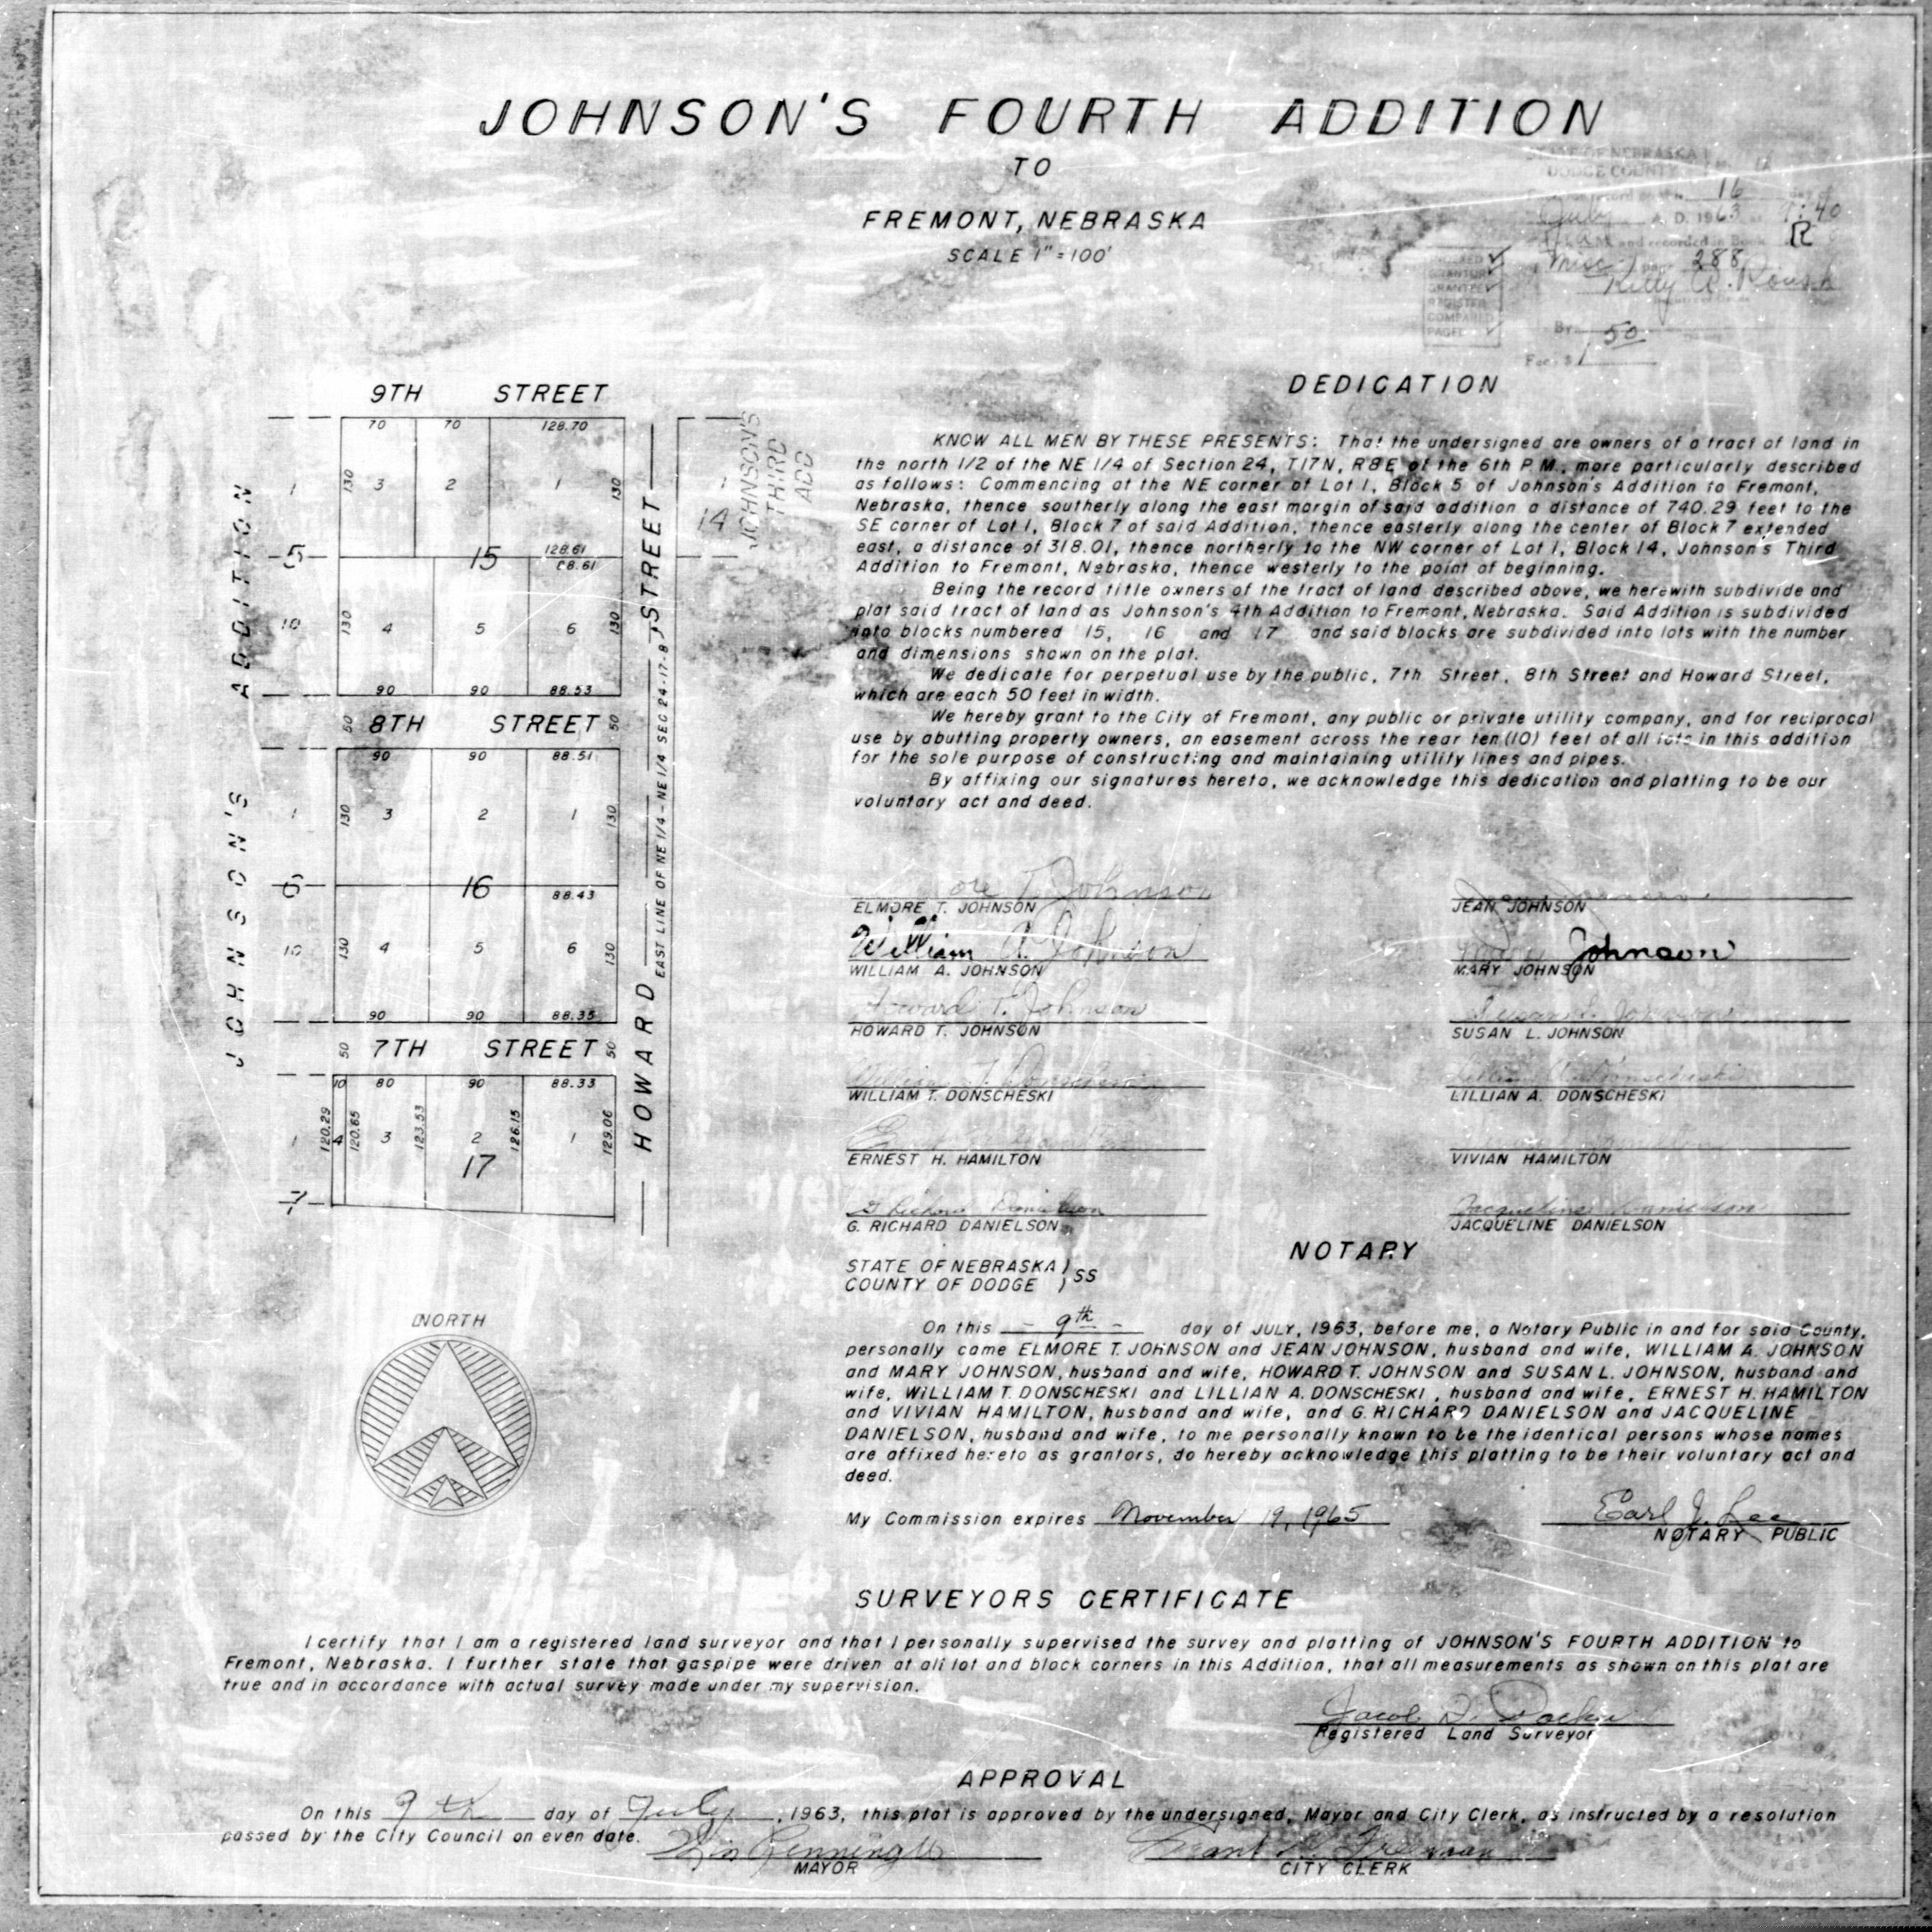 JOHNSON'S FOURTH ADDITION
TO
FREMONT, NEBRASKA
SCALE 1"=100'
STATE OF NEBRASKA
DODGE COUNTY
16
July A. D. 1963
and recorded in Book R
Misc page 288
By
Fee $ 1 50
INDEXED
GRANTOR
GRANTEE
REGISTER
COMPARED
PAGED
9TH STREET
70 70 128.70
130 3 2 1 130
1
5 15 128.61
88.61
10 130 4 5 6 130
90 90 88.53
50 8TH STREET 50
90 90 88.51
1 130 3 2 1 130
6 16 88.43
10 130 4 5 6 130
90 90 88.35
50 7TH STREET 50
10 80 90 88.33
1 120.29 4 120.65 3 123.53 2 126.15 1 129.06
17
7
JOHNSON'S ADDITION
HOWARD STREET
EAST LINE OF NE 1/4 - NE 1/4 SEC 24-17-8
1
14
JOHNSON'S
THIRD
ADD
NORTH
DEDICATION
KNOW ALL MEN BY THESE PRESENTS: That the undersigned are owners of a tract of land in
the north 1/2 of the NE 1/4 of Section 24, T17N, R8E of the 6th P.M., more particularly described
as follows: Commencing at the NE corner of Lot 1, Block 5 of Johnson's Addition to Fremont,
Nebraska, thence southerly along the east margin of said addition a distance of 740.29 feet to the
SE corner of Lot 1, Block 7 of said Addition, thence easterly along the center of Block 7 extended
east, a distance of 318.01, thence northerly to the NW corner of Lot 1, Block 14, Johnson's Third
Addition to Fremont, Nebraska, thence westerly to the point of beginning.
Being the record title owners of the tract of land described above, we herewith subdivide and
plat said tract of land as Johnson's 4th Addition to Fremont, Nebraska. Said Addition is subdivided
into blocks numbered 15, 16 and 17 and said blocks are subdivided into lots with the number
and dimensions shown on the plat.
We dedicate for perpetual use by the public, 7th Street, 8th Street and Howard Street,
which are each 50 feet in width.
We hereby grant to the City of Fremont, any public or private utility company, and for reciprocal
use by abutting property owners, an easement across the rear ten (10) feet of all lots in this addition
for the sole purpose of constructing and maintaining utility lines and pipes.
By affixing our signatures hereto, we acknowledge this dedication and platting to be our
voluntary act and deed.
T. Johnson
ELMORE T. JOHNSON JEAN JOHNSON
William A. Johnson Mary Johnson
WILLIAM A. JOHNSON MARY JOHNSON
Howard T. Johnson Susan L. Johnson
HOWARD T. JOHNSON SUSAN L. JOHNSON
William T. Donscheski Lillian A. Donscheski
WILLIAM T. DONSCHESKI LILLIAN A. DONSCHESKI
ERNEST H. HAMILTON VIVIAN HAMILTON
G Richard Danielson Jacqueline Danielson
G. RICHARD DANIELSON JACQUELINE DANIELSON
NOTARY
STATE OF NEBRASKA )
COUNTY OF DODGE ) SS
On this - 9th - day of JULY, 1963, before me, a Notary Public in and for said County,
personally came ELMORE T. JOHNSON and JEAN JOHNSON, husband and wife, WILLIAM A. JOHNSON
and MARY JOHNSON, husband and wife, HOWARD T. JOHNSON and SUSAN L. JOHNSON, husband and
wife, WILLIAM T. DONSCHESKI and LILLIAN A. DONSCHESKI, husband and wife, ERNEST H. HAMILTON
and VIVIAN HAMILTON, husband and wife, and G. RICHARD DANIELSON and JACQUELINE
DANIELSON, husband and wife, to me personally known to be the identical persons whose names
are affixed hereto as grantors, do hereby acknowledge this platting to be their voluntary act and
deed.
My Commission expires November 19, 1965 Earl J. Lee
NOTARY PUBLIC
SURVEYORS CERTIFICATE
I certify that I am a registered land surveyor and that I personally supervised the survey and platting of JOHNSON'S FOURTH ADDITION to
Fremont, Nebraska. I further state that gaspipe were driven at all lot and block corners in this Addition, that all measurements as shown on this plat are
true and in accordance with actual survey made under my supervision.
Registered Land Surveyor
APPROVAL
On this 9th day of July, 1963, this plat is approved by the undersigned, Mayor and City Clerk, as instructed by a resolution
passed by the City Council on even date.
MAYOR CITY CLERK